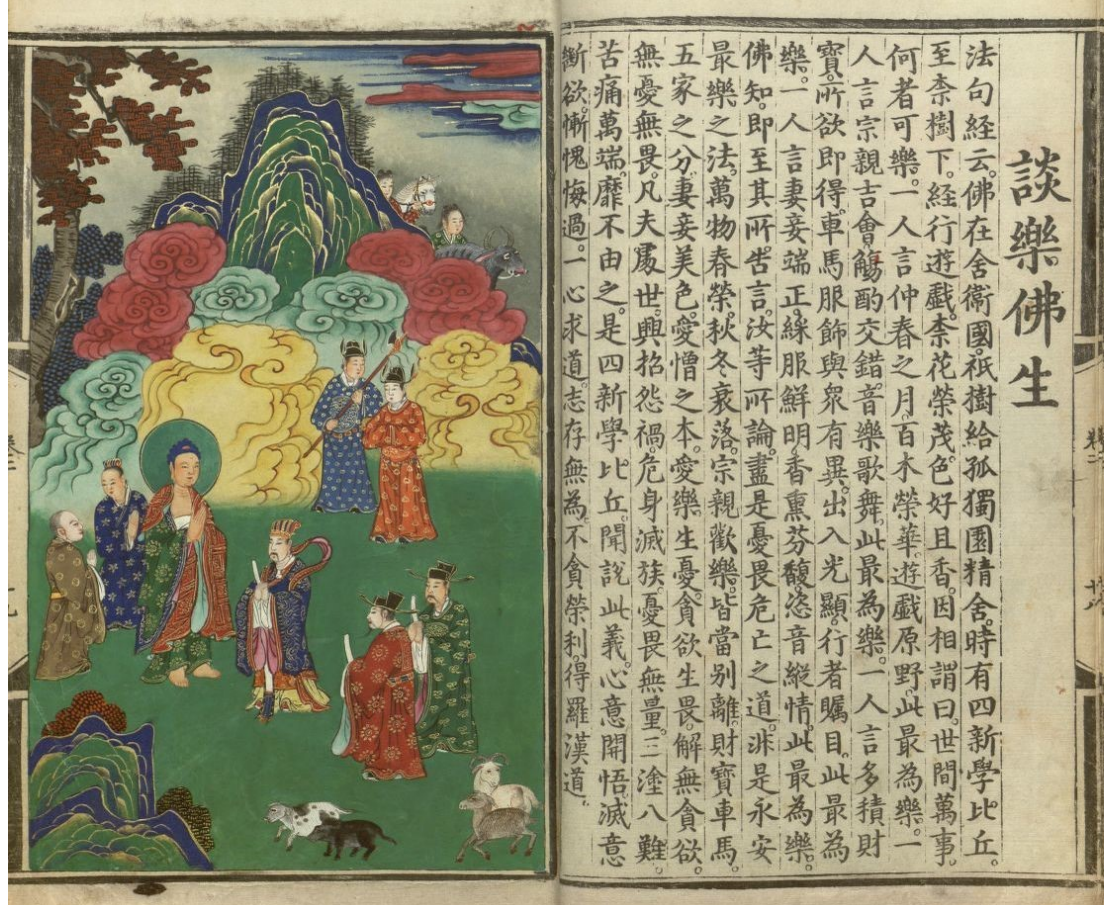 談樂佛生
法句経云。佛在舍衞國。祇樹給孤獨園精舍。時有四新學比丘。
至柰樹下。経行遊戲。柰花榮茂。色好且香。因相謂曰。世間萬事。
何者可樂。一人言仲春之月。百木榮華。遊戲原野。此最為樂。一
人言宗親吉會。觴酌交錯。音樂歌舞。此最為樂。一人言多積財
寶。所欲即得。車馬服飾與衆有異。出入光顯。行者矚目。此最為
樂。一人言妻妾端正。綵服鮮明。香熏芬馥。恣音縱情。此最為樂。
佛知。即至其所。告言。汝等所論。盡是憂畏危亡之道。非是永安
最樂之法。萬物春榮。秋冬衰落。宗親歡樂。皆當別離。財寶車馬。
五家之分。妻妾美色。愛憎之本。愛樂生憂。貪欲生畏。解無貪欲。
無憂無畏。凡夫處世。興招怨禍。危身滅族。憂畏無量。三塗八難。
苦痛萬端。靡不由之。是四新學比丘。聞說此義。心意開悟。滅意
斷欲。慚愧悔過。一心求道。志存無為。不貪榮利。得羅漢道。